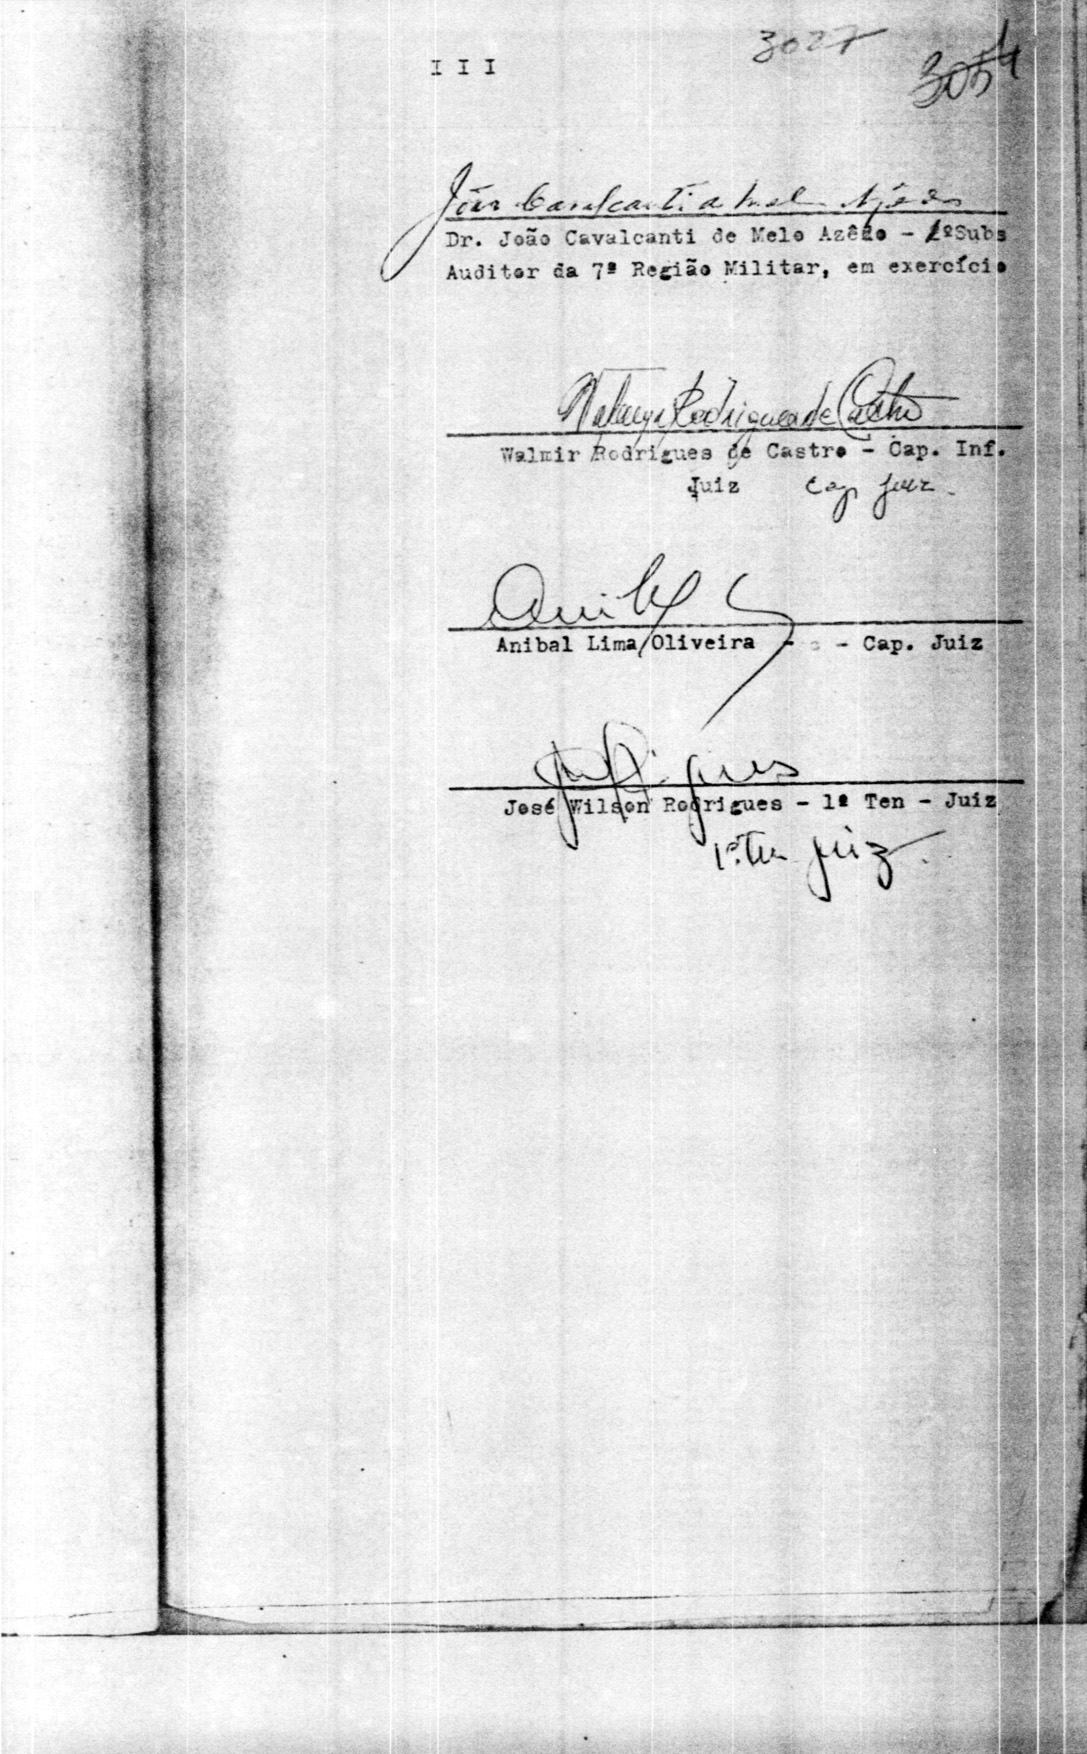 3027
III
3054
João Cavalcanti de Melo Azêdo
Dr. João Cavalcanti de Melo Azêdo - 1ºSubs
Auditor da 7ª Região Militar, em exercício
Rodrigues de Castro
Walmir Rodrigues de Castro - Cap. Inf.
Juiz Cap Juiz.
Anibal Lima Oliveira - - Cap. Juiz
José Wilson Rodrigues - 1º Ten - Juiz
1º Ten Juiz.